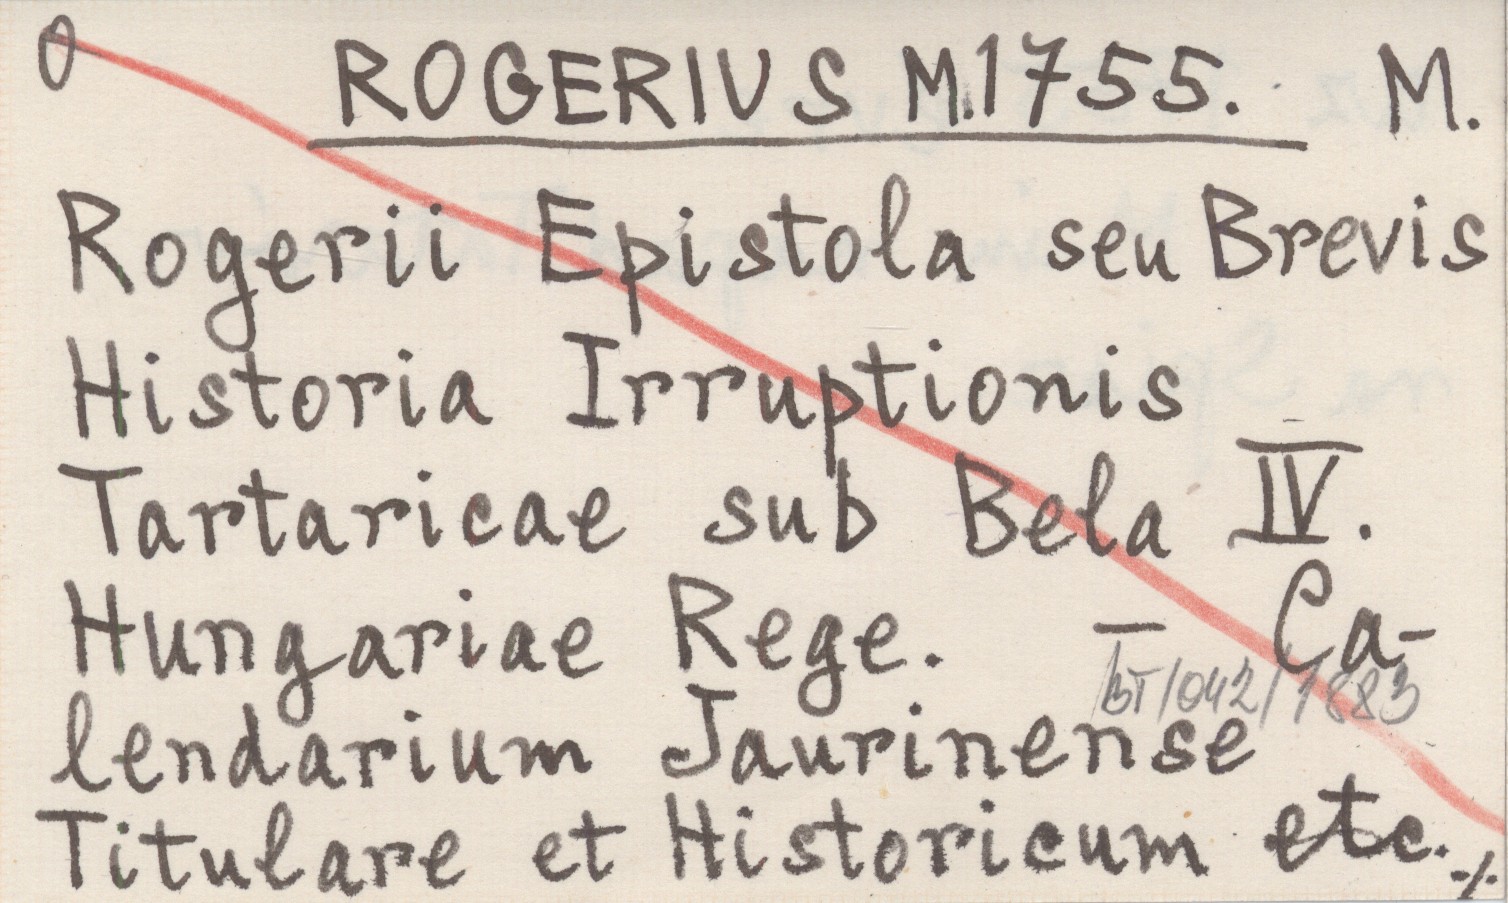 0 ROGERIUS M.1755. M.
Rogerii Epistola seu Brevis
Historia Irruptionis
Tartaricae sub Bela IV.
Hungariae Rege. — Ca-
BT/042/1883
lendarium Jaurinense
Titulare et Historicum etc.
./.